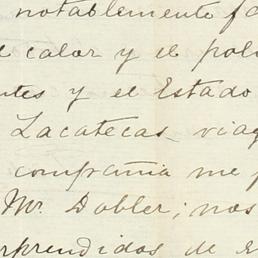 notablemente fa
el calor y el polv
ntes y el Estado
Zacatecas viag
compañia me p
Mr. Dobler; nos
rprendidos de e